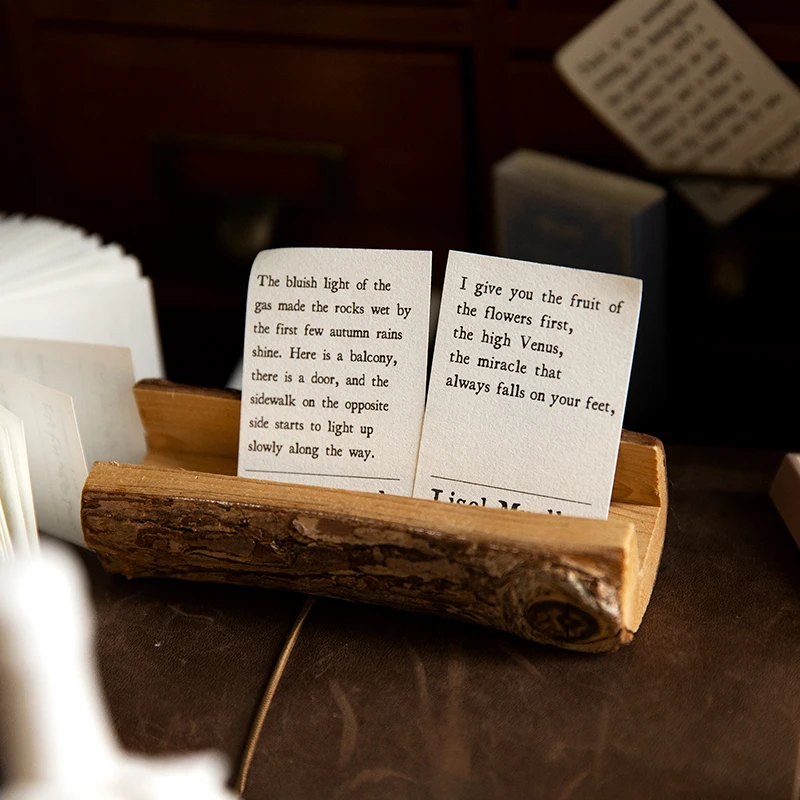 The bluish light of the
gas made the rocks wet by
the first few autumn rains
shine. Here is a balcony,
there is a door, and the
sidewalk on the opposite
side starts to light up
slowly along the way.
I give you the fruit of
the flowers first,
the high Venus,
the miracle that
always falls on your feet,
Lisel